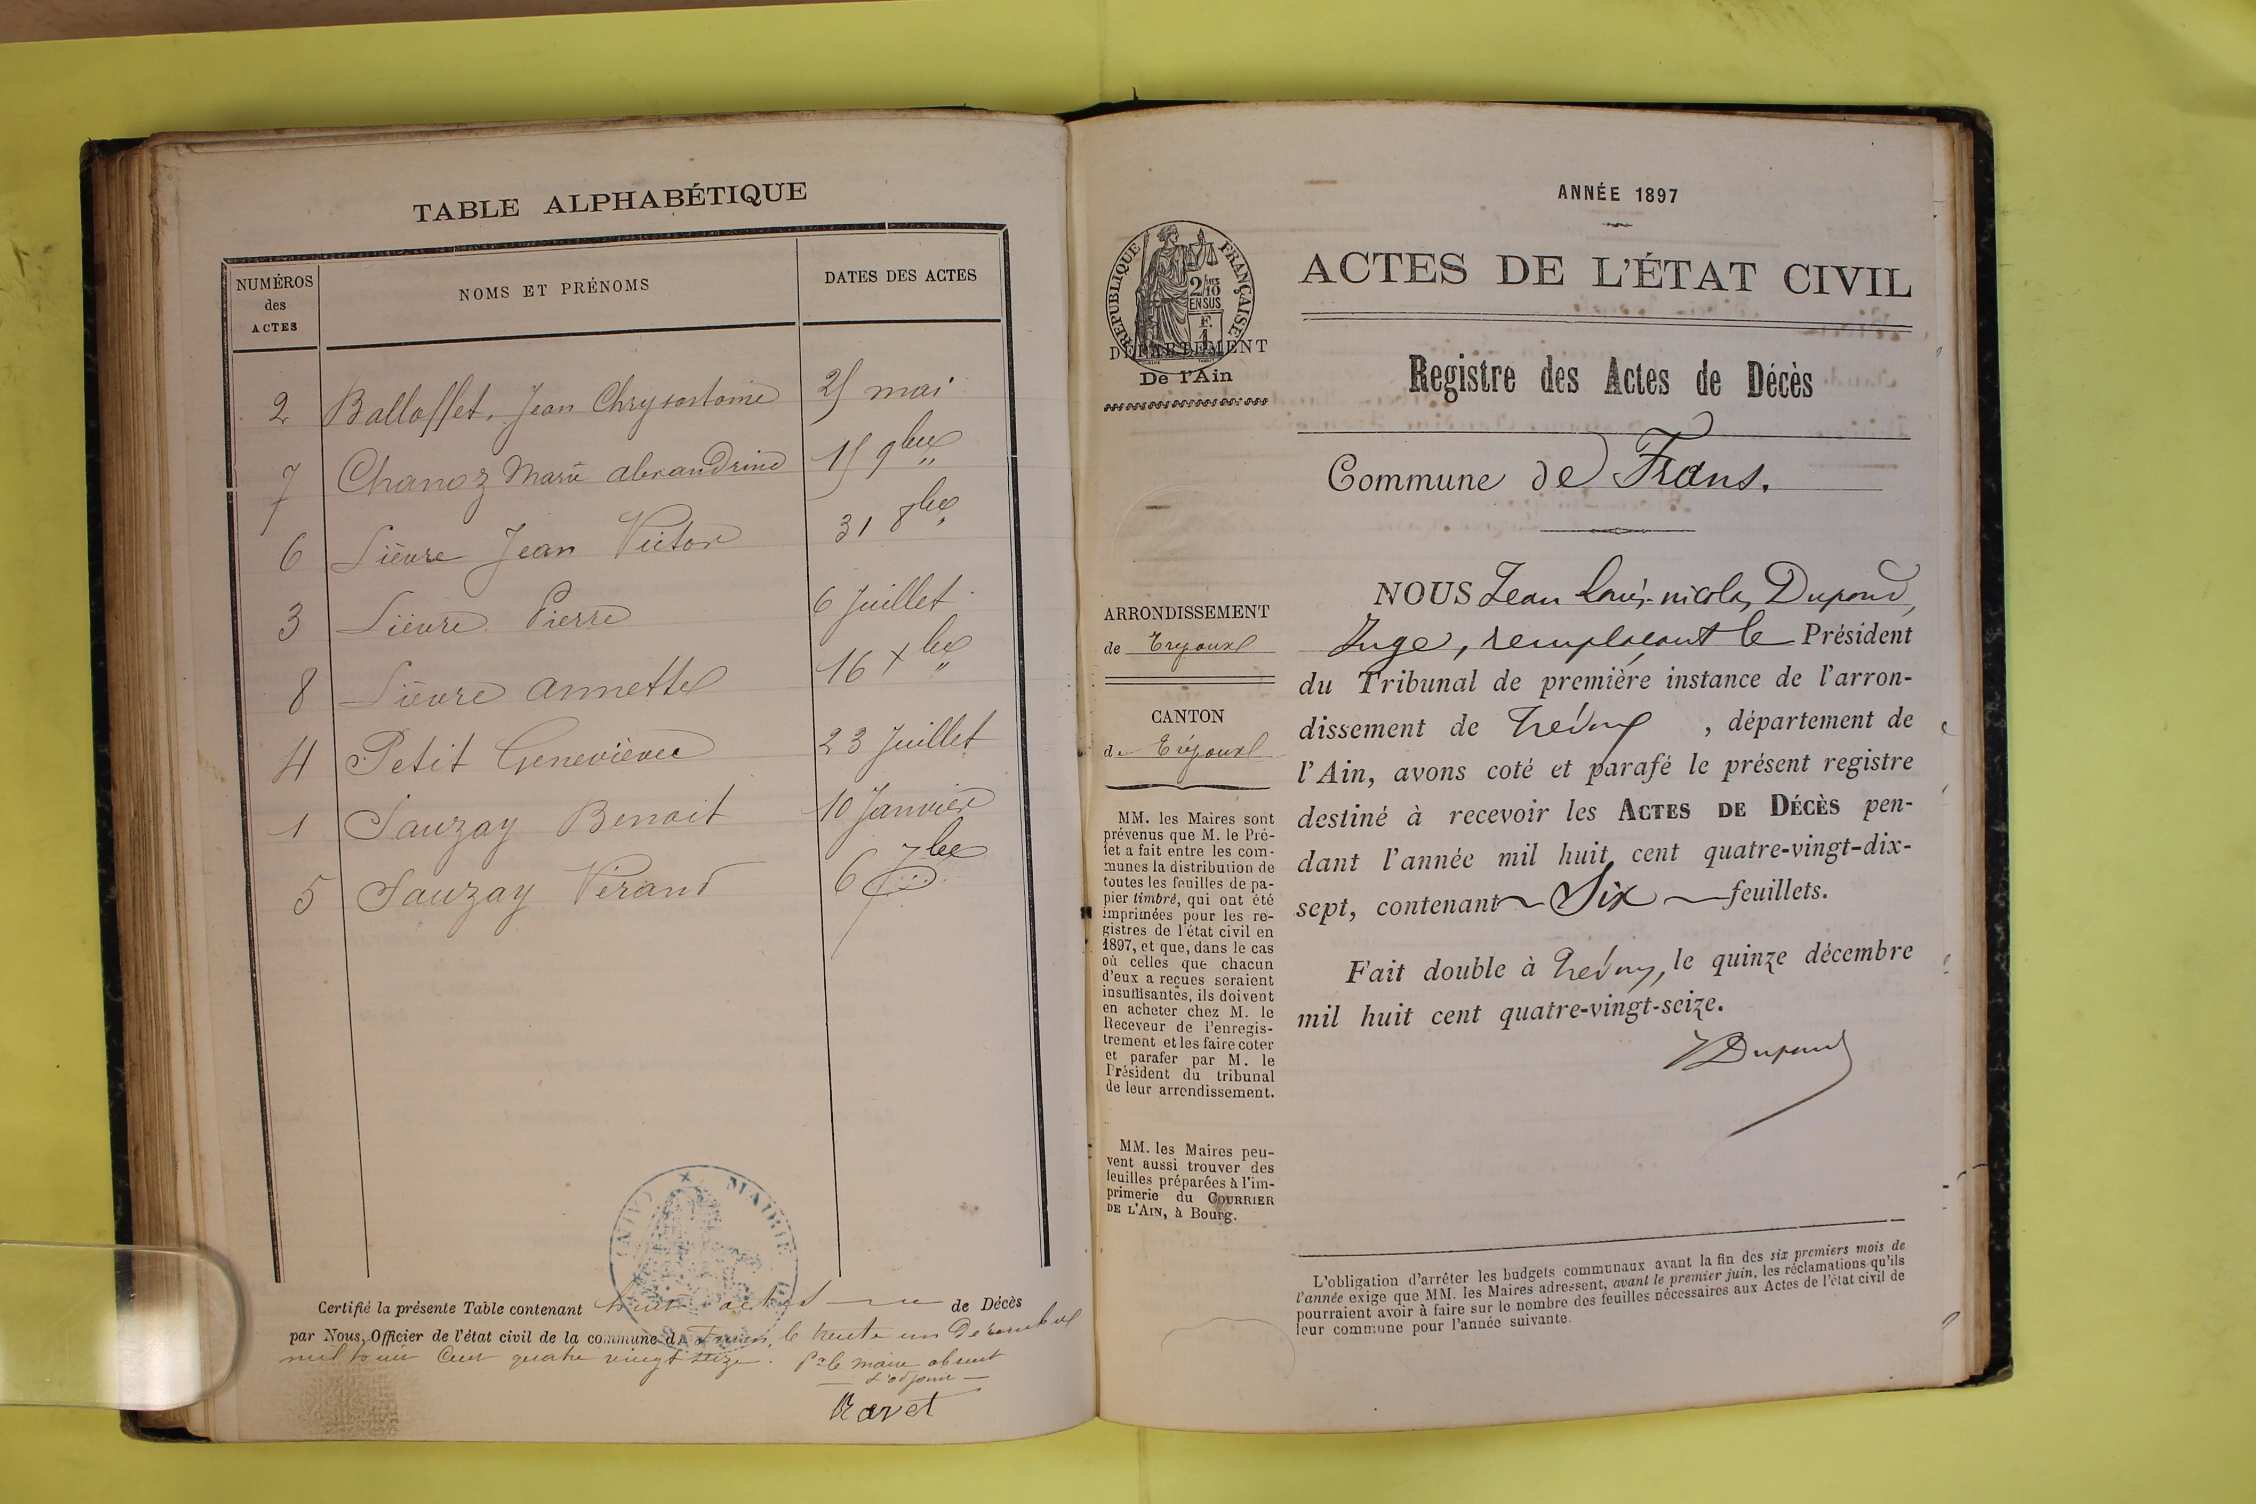 TABLE ALPHABÉTIQUE
NUMÉROS des ACTES
NOMS ET PRÉNOMS
DATES DES ACTES
2 Balloffet, Jean Chrysostome 25 mai
7 Chanoz Marie alexandrine 15 9bre
6 Lièvre Jean Victor 31 8bre
3 Lièvre Pierre 6 Juillet
8 Lièvre annette 16 Xbre
4 Petit Geneviève 23 Juillet
1 Sauzay Benoit 10 Janvier
5 Sauzay Vérand 6 7bre
MAIRIE
Certifié la présente Table contenant huit actes de Décès
par Nous, Officier de l'état civil de la commune de Frans, le trente un Décembre
mil huit Cent quatre vingt seize. Pr le maire absent
L'adjoint
Ravet
ANNÉE 1897
RÉPUBLIQUE FRANÇAISE
2/10 EN SUS
F. 1
DÉPARTEMENT
De l'Ain
ACTES DE L'ÉTAT CIVIL
Registre des Actes de Décès
Commune de Frans.
ARRONDISSEMENT
de Trévoux
CANTON
de Trévoux
MM. les Maires sont
prévenus que M. le Pré-
fet a fait entre les com-
munes la distribution de
toutes les feuilles de pa-
pier timbré, qui ont été
imprimées pour les re-
gistres de l'état civil en
1897, et que, dans le cas
où celles que chacun
d'eux a reçues seraient
insuffisantes, ils doivent
en acheter chez M. le
Receveur de l'enregis-
trement et les faire coter
et parafer par M. le
Président du tribunal
de leur arrondissement.
MM. les Maires peu-
vent aussi trouver des
feuilles préparées à l'im-
primerie du COURRIER
DE L'AIN, à Bourg.
NOUS Jean Louis-nicolas Dupond,
Juge, remplaçant le Président
du Tribunal de première instance de l'arron-
dissement de Trévoux, département de
l'Ain, avons coté et parafé le présent registre
destiné à recevoir les ACTES DE DÉCÈS pen-
dant l'année mil huit cent quatre-vingt-dix-
sept, contenant Six feuillets.
Fait double à Trévoux, le quinze décembre
mil huit cent quatre-vingt-seize.
Dupond
L'obligation d'arrêter les budgets communaux avant la fin des six premiers mois de
l'année exige que MM. les Maires adressent, avant le premier juin, les réclamations qu'ils
pourraient avoir à faire sur le nombre des feuilles nécessaires aux Actes de l'état civil de
leur commune pour l'année suivante.